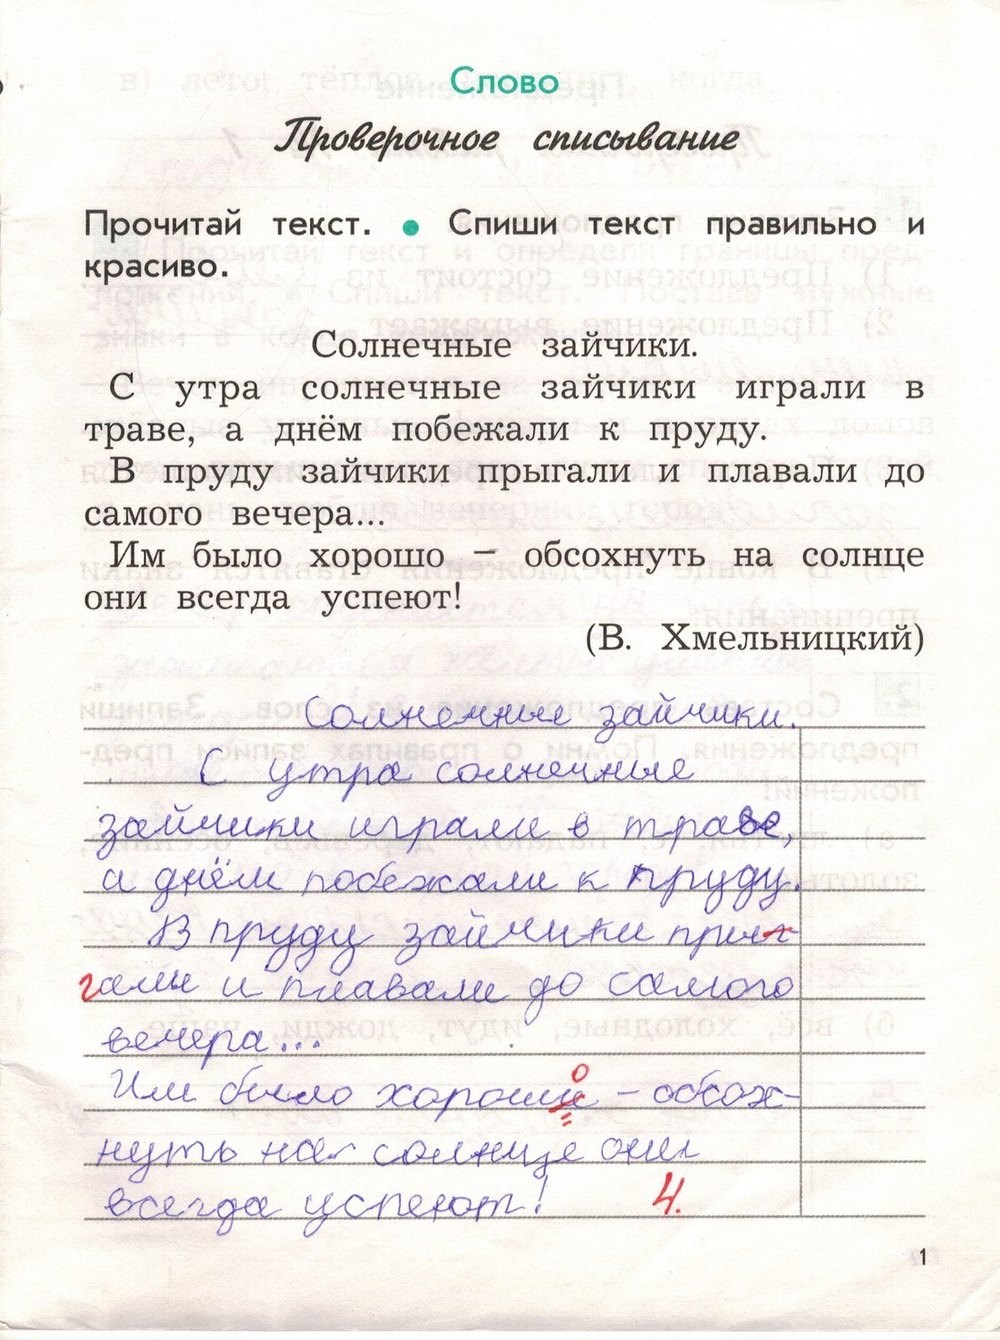 Слово
Проверочное списывание
Прочитай текст. • Спиши текст правильно и
красиво.
Солнечные зайчики.
С утра солнечные зайчики играли в
траве, а днём побежали к пруду.
В пруду зайчики прыгали и плавали до
самого вечера...
Им было хорошо – обсохнуть на солнце
они всегда успеют!
(В. Хмельницкий)
Солнечные зайчики.
С утра солнечные
зайчики играли в траве,
а днём побежали к пруду.
В пруду зайчики пры-
гали и плавали до самого
вечера...
Им было хорошо – обсох-
нуть на солнце они
всегда успеют!
4.
1